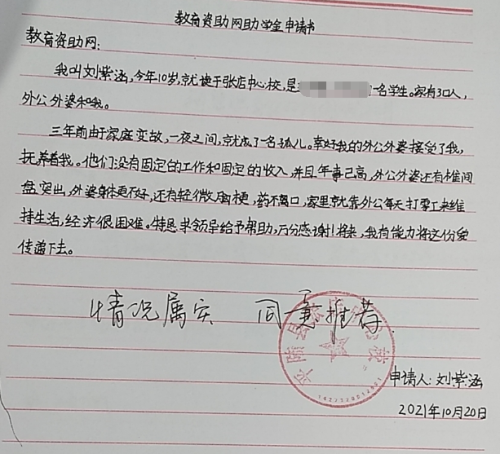 教育资助网助学金申请书
教育资助网：
我叫刘紫涵，今年10岁，就读于张店中心校，是 一名学生。家有3口人，
外公外婆和我。
三年前由于家庭变故，一夜之间，就成了一名孤儿。幸好我的外公外婆接受了我，
抚养着我。他们没有固定的工作和固定的收入，并且年事已高，外公外婆还有椎间
盘突出，外婆身体更不好，还有轻微脑梗，药不离口，家里就靠外公每天打零工来维
持生活，经济很困难。特恳求领导给予帮助，万分感谢！将来，我有能力将这份爱
传递下去。
情况属实 同意推荐
申请人：刘紫涵
2021年10月20日